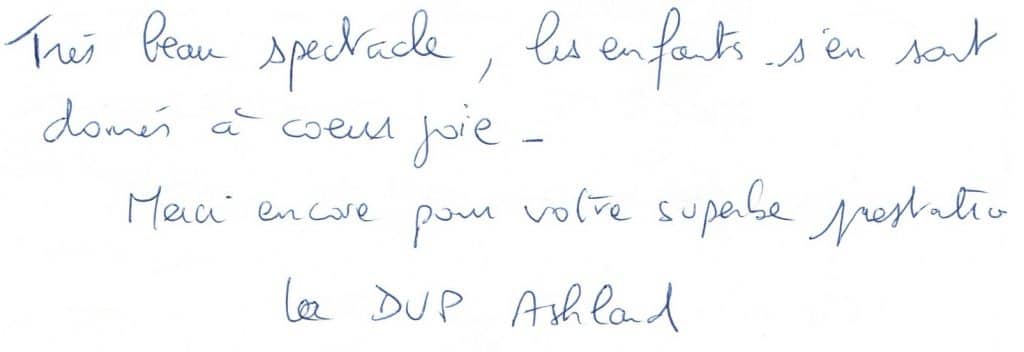 Très beau spectacle, les enfants s'en sont
donnés à coeur joie -
Merci encore pour votre superbe prestatio
La DUP Ashland